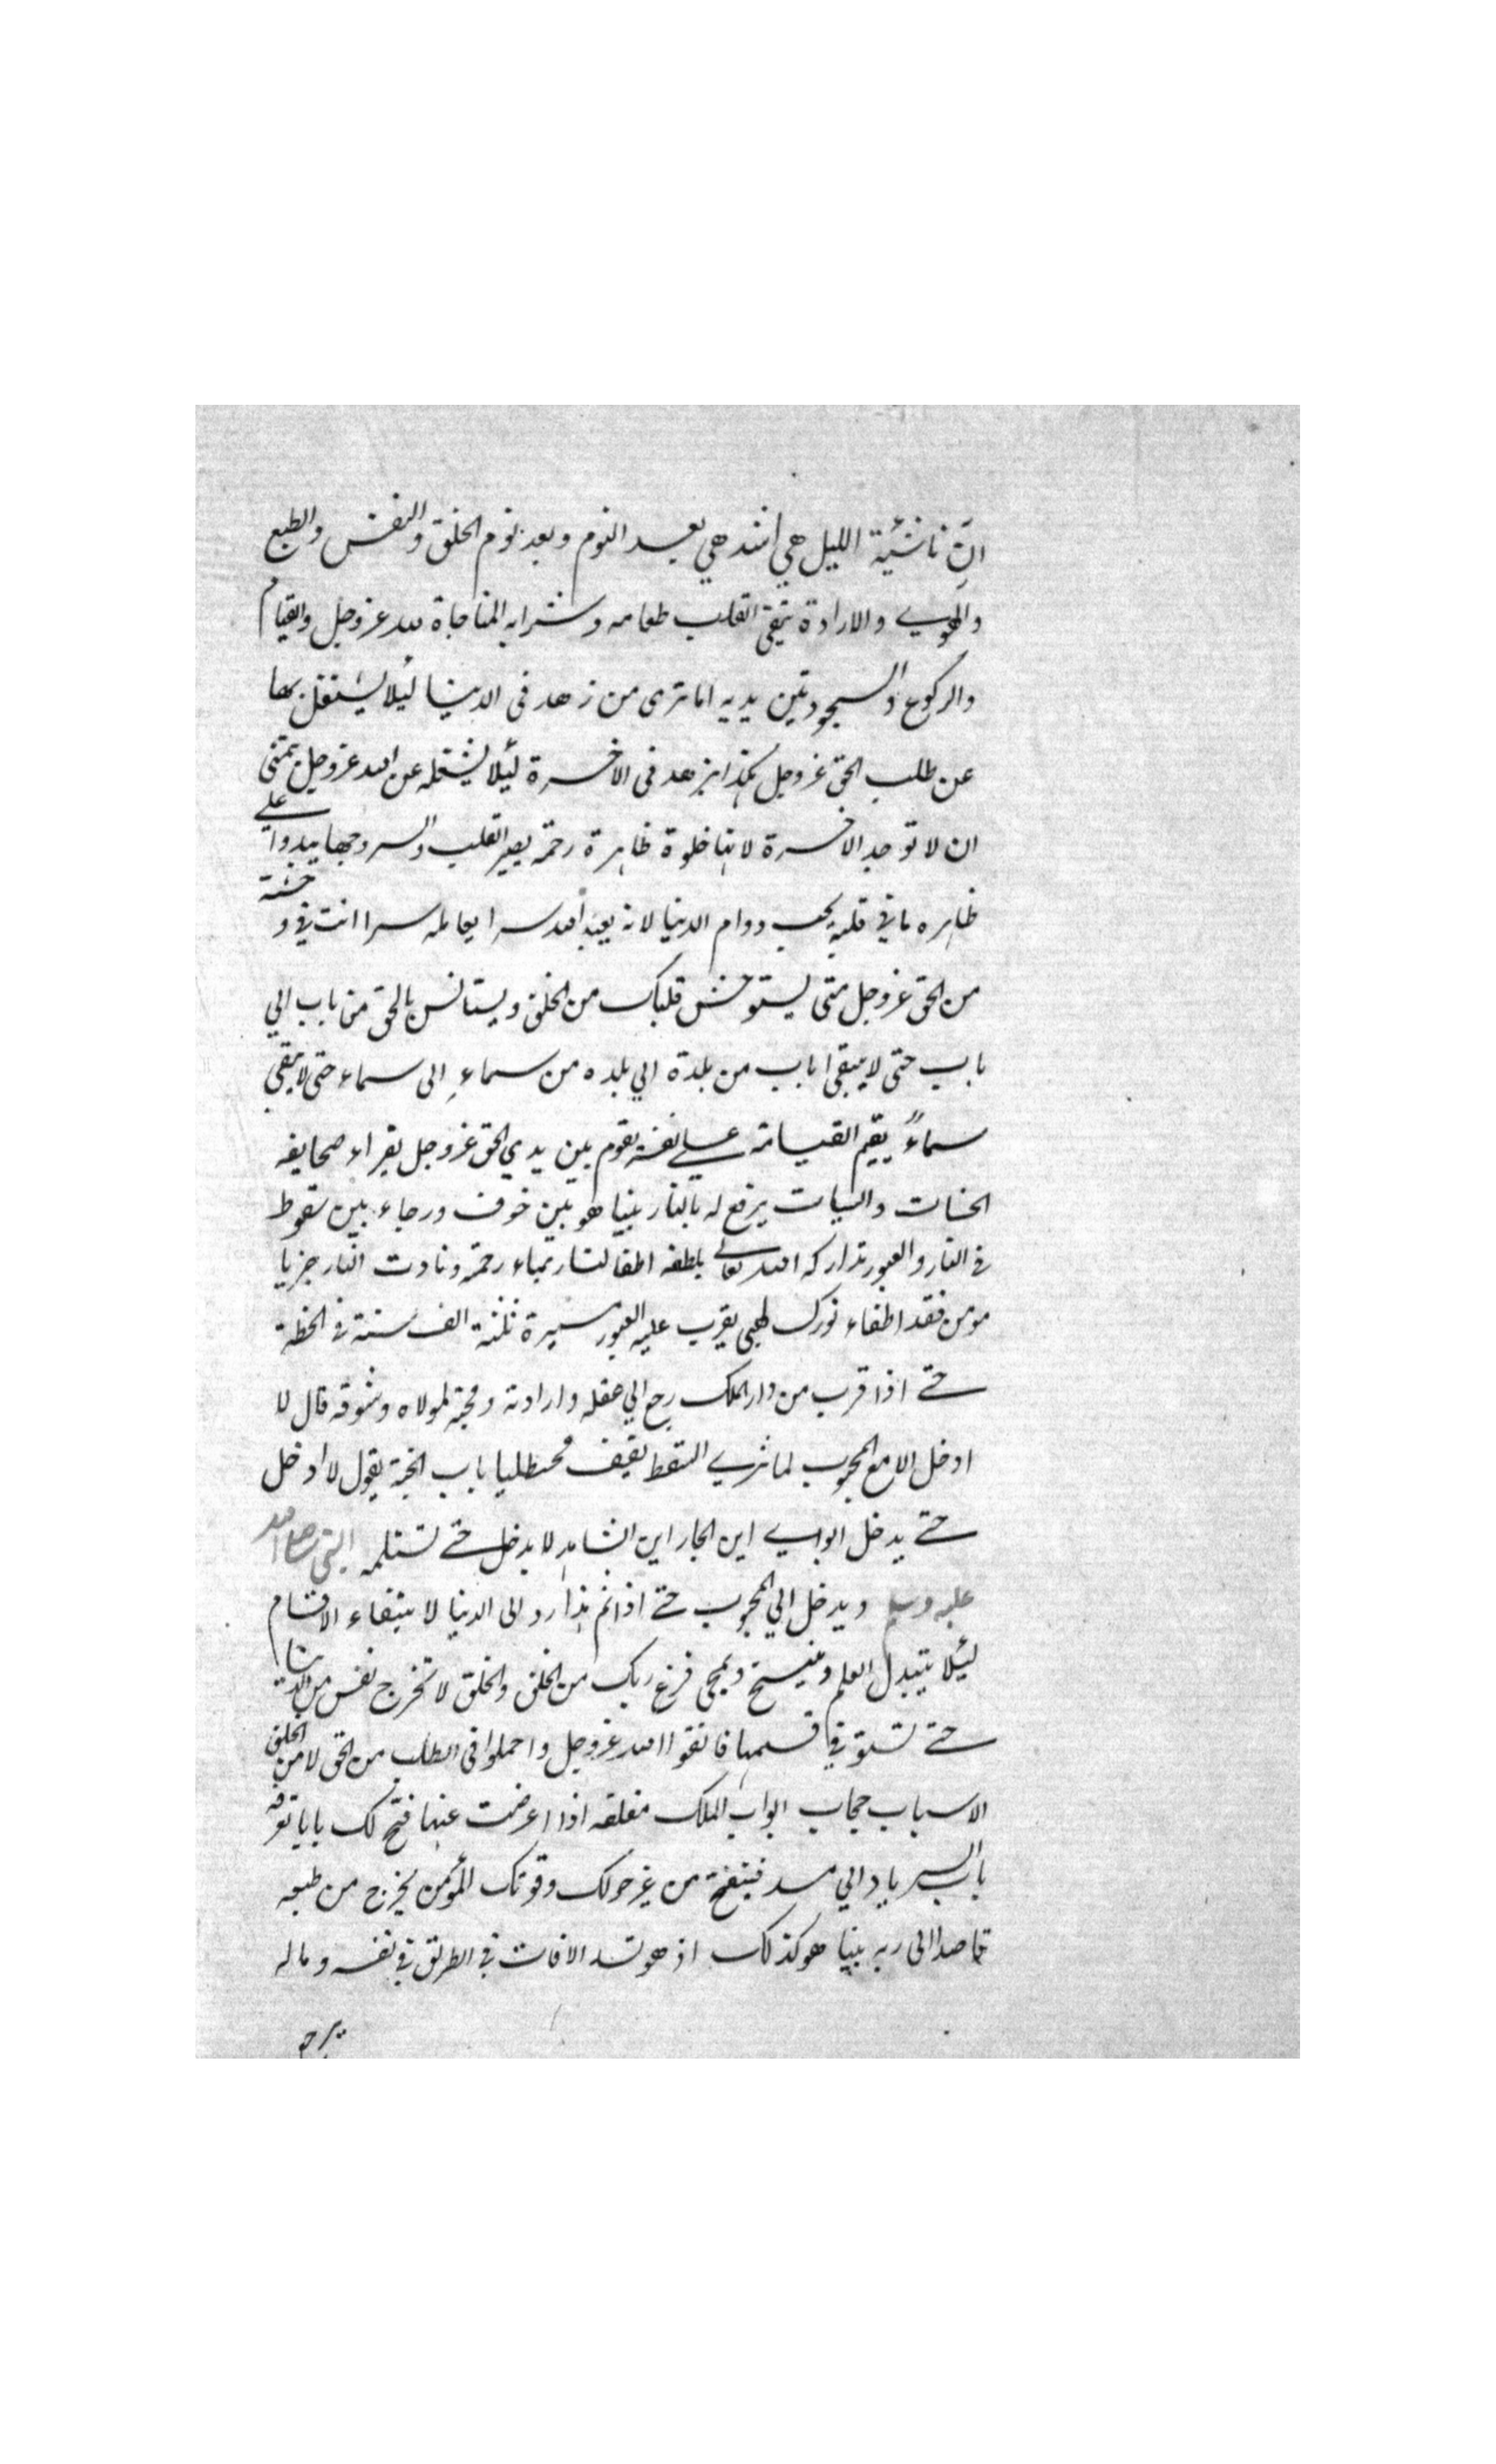 ان ناشئية الليل هي اشد هي بعد النوم وبعد نوم الخلق والنفس والطبع
والهوي والارادة يبقى القلب طعامه وشرابه المناجاة لله عزوجل والقيام
والركوع والسجود بين يديه اما ترى من زهد في الدنيا ليلا يشتغل بها
عن طلب الحق عزوجل هكذا يزهد في الاخرة ليئلا يشتغله عن الله عزوجل يتمنى
ان لا توجد الاخرة لانها خلوة ظاهرة رحمة يصير القلب والسر وجها يبدوا علي
ظاهره ما في قلبه يحب دوام الدنيا لانه يعبد الله سرا يعامله سرا انت في وحشة
من الحق عزوجل متى يستوحش قلبك من الخلق ويستانس بالحق من باب الي
باب حتى لا يبقى باب من بلدة الي بلده من سماء الى سماء حتى لا يبقى
سماء يقيم القيامة علي نفسه يقوم بين يدي الحق عزوجل يقراء صحايفه
الحسنات والسيات يرفع له بالنار بينا هو بين خوف ورجاء بين سقوط
في النار والعبور تداركه الله تعالي بلطفه اطفا لنار بماء رحمة ونادت النار جزيا
مومن فقد اطفاء نورك لهبي يقرب عليه العبور مسيرة ثلثة الف سنة في الحظة
حتي اذا قرب من دار الملك رجع الي عقله وارادته ومحبة لمولاه وشوقه قال لا
ادخل الا مع المحبوب لما ترى السقط يقيف محبطليا باب الجنة يقول لا ادخل
حتي يدخل ابواي اين الجار اين الشاهد لا يدخل حتي تستلمه النبي صلى الله
عليه وسلم ويدخل الي المحبوب حتي اذا تم هذا رد الى الدنيا لا ستيفاء الاقسام
ليئلا يتبدل العلم وينسخ ويمحي فرغ ربك من الخلق والخلق لا تخرج نفس من الدنيا
حتي تستوفي قسمها فاتقوا الله عزوجل واجملوا في الطلب من الحق لا من الخلق
الاسباب حجاب ابواب الملك مغلقه اذا اعرضت عنها فتح لك بابا تعرفه
باب السر يادالي سد فينفتح من غير حولك وقوتك المؤمن يخرج من طبعه
قاصدا الى ربه بينا هو كذلك اذ هو تسد الافات في الطريق في نفسه وماله